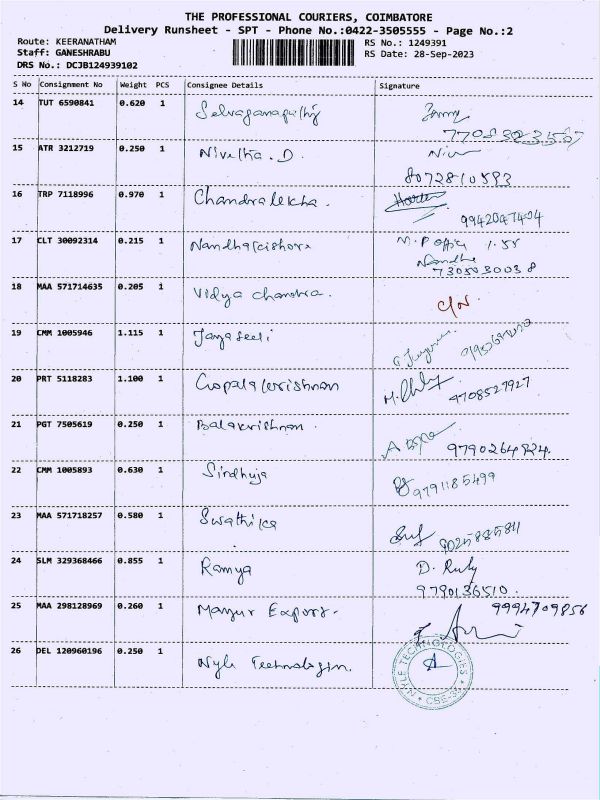 THE PROFESSIONAL COURIERS, COIMBATORE
Delivery Runsheet - SPT - Phone No.:0422-3505555 - Page No.:2
Route: KEERANATHAM RS No.: 1249391
Staff: GANESHRABU RS Date: 28-Sep-2023
DRS No.: DCJB124939102
S No Consignment No Weight PCS Consignee Details Signature
14 TUT 6590841 0.620 1 Selvaganapathy
15 ATR 3212719 0.250 1 Nivetha. D.
8072810593
16 TRP 7118996 0.970 1 Chandralekha.
9942047404
17 CLT 30092314 0.215 1 Nandhakishore M.P office 1.55
Nandhu
7305030038
18 MAA 571714635 0.205 1 Vidya chandra. C/N.
19 CMM 1005946 1.115 1 Jayaseeli
20 PRT 5118283 1.100 1 Gopalakrishnan
9708527927
21 PGT 7505619 0.250 1 Balakrishnan.
22 CMM 1005893 0.630 1 Sindhuja
9791185499
23 MAA 571718257 0.580 1 Swathika
24 SLM 329368466 0.855 1 Ramya D. Ruby
9790136510.
25 MAA 298128969 0.260 1 Mayur Export. 9994709856
26 DEL 120960196 0.250 1 Nyle Technologies.
NYLE TECHNOLOGIES
CBE-35